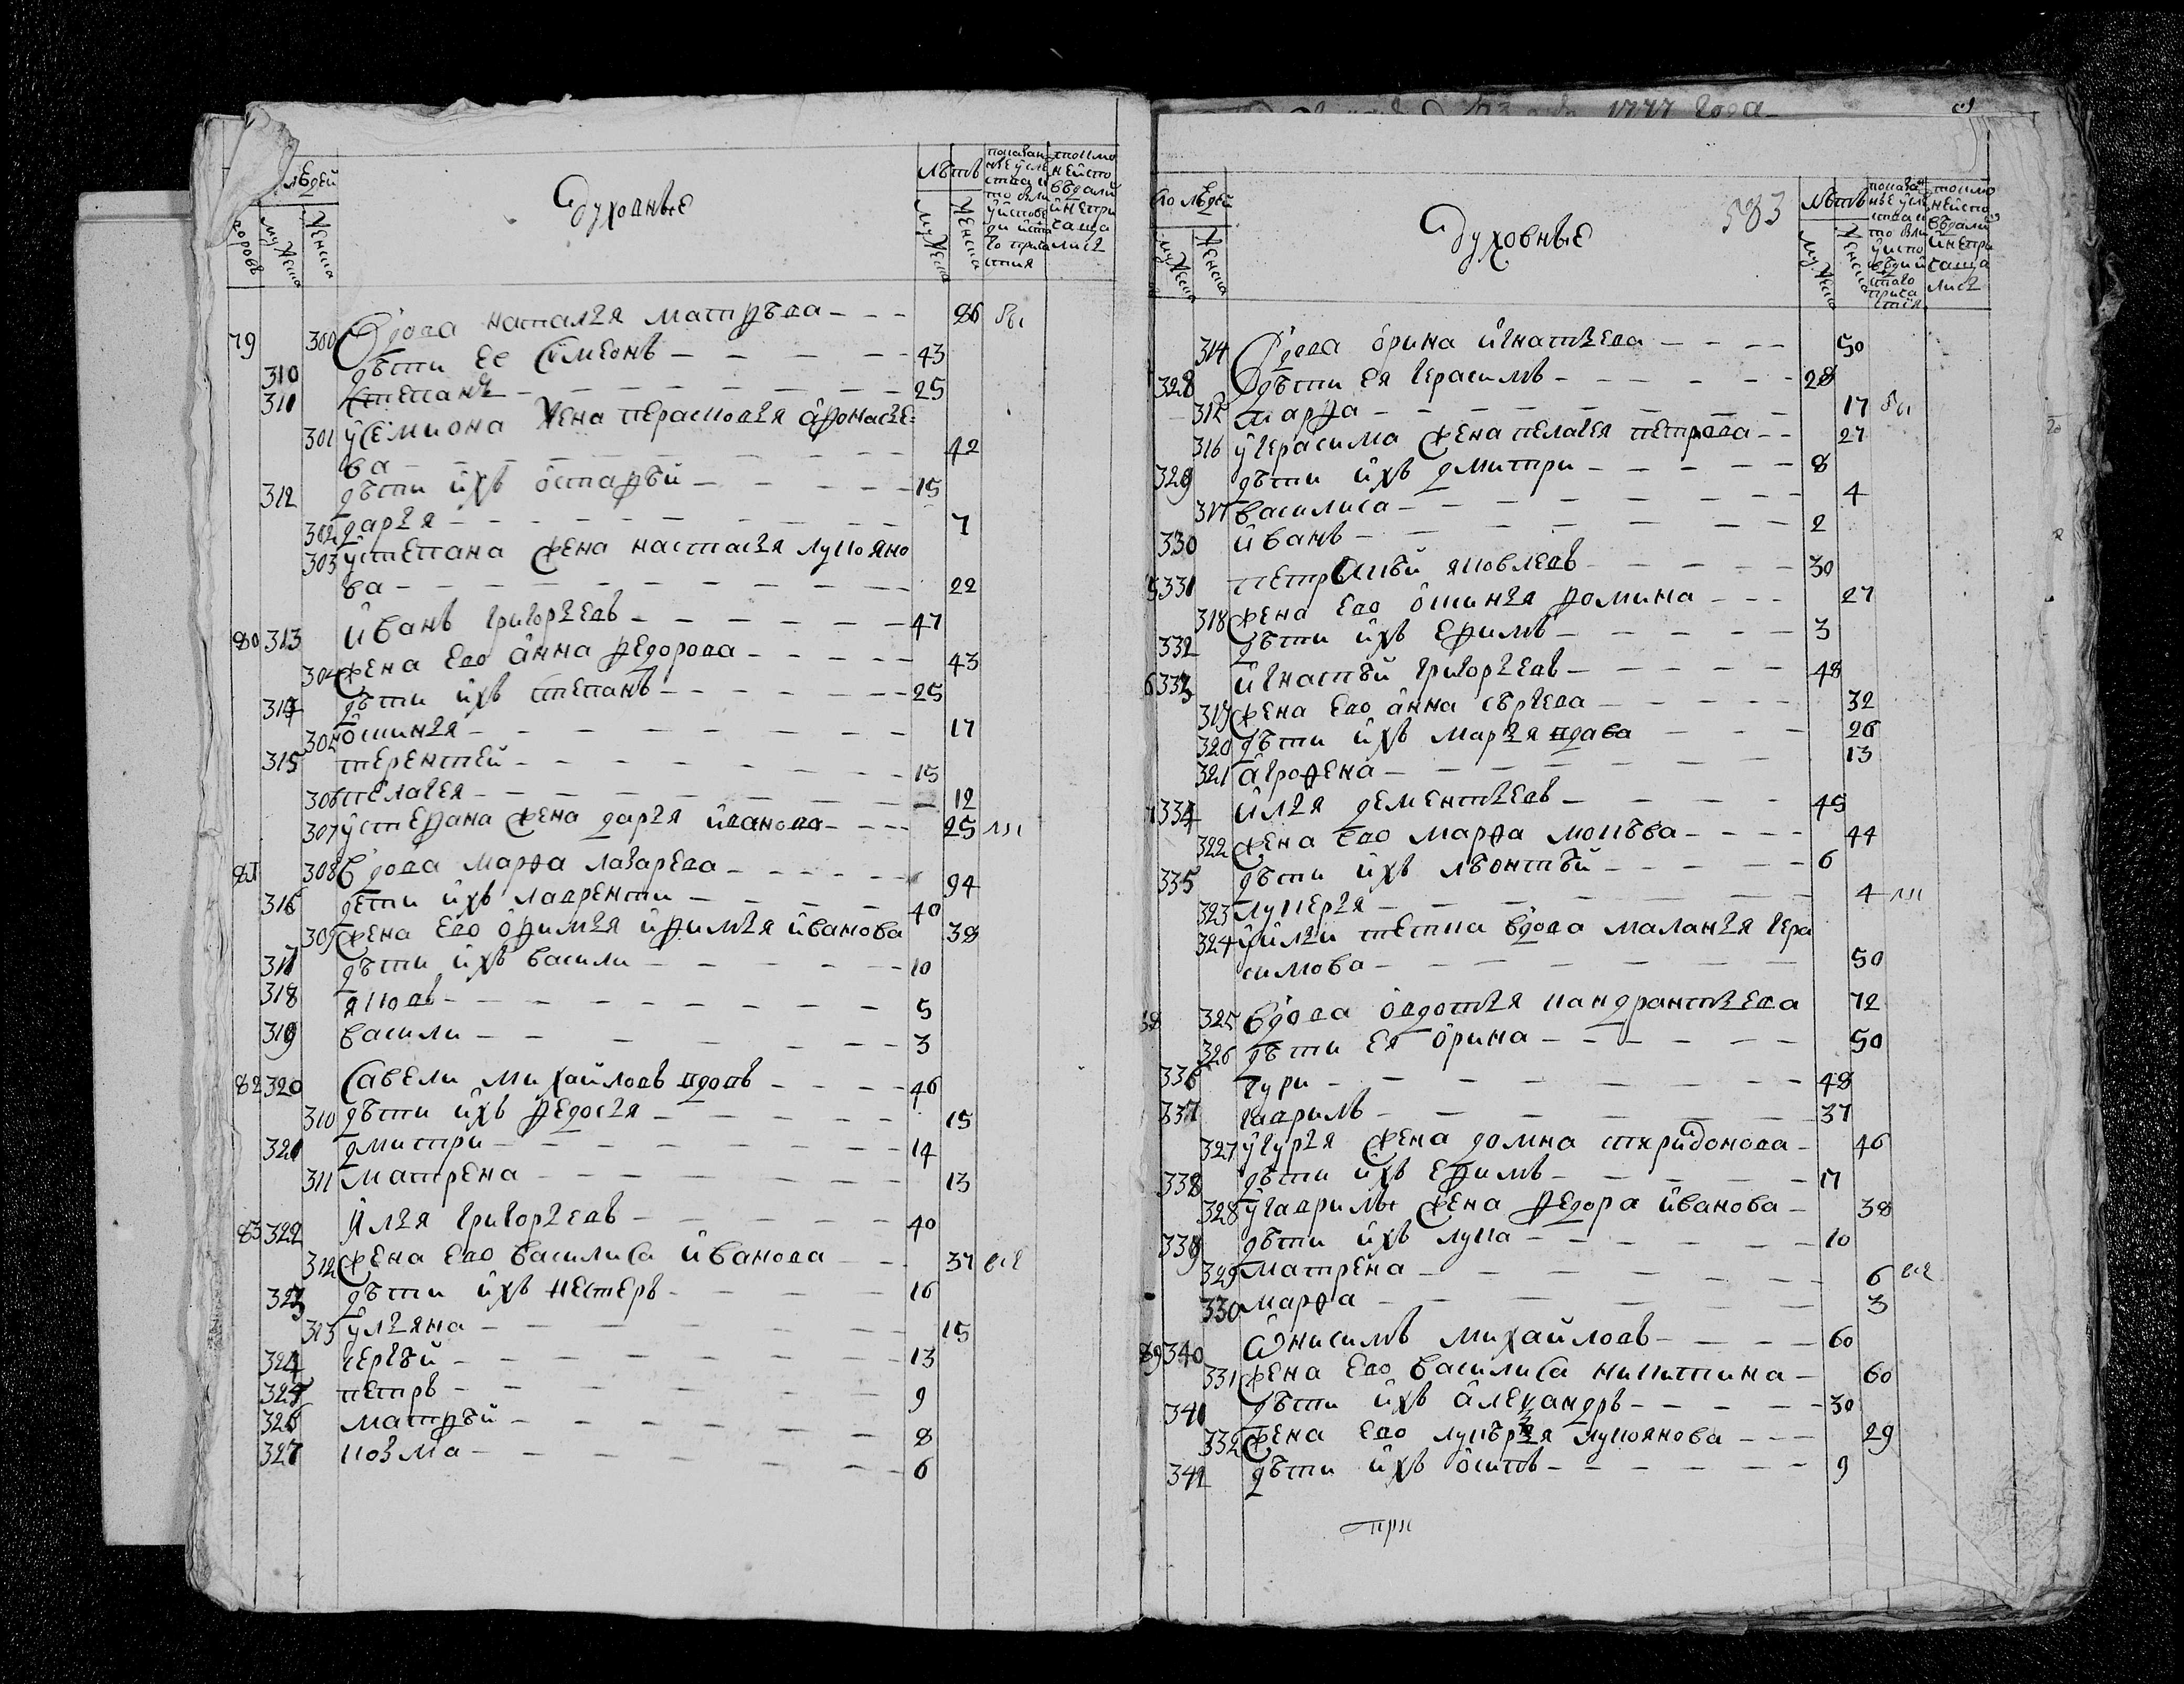 людей
дворовъ
мужеска
женска
духовные
лѣтъ
мужеска
женска
79 300 Вдова наталия матфѣева - - - 86 бы
310 дѣти ее симеонъ - - - 43
311 степанъ - - - 25
301 у семиона жена парасковия афонасие=
ва - - - 42
312 дѣти ихъ остафѣй - - - 15
302 дария - - - 7
303 у степана жена настасия лукояно
ва - - - 22
80 313 иванъ григориевъ - - - 47
304 жена ево анна федорова - - - 43
314 дѣти ихъ степанъ - - - 25
305 ксиния - - - 17
315 терентей - - - 15
306 пелагея - - - 12
307 у стефана жена дария иванова - - - 25
81 308 вдова марфа лазарева - - - 94
316 дети ихъ лавренти - - - 40
309 жена ево ефимия ефимия иванова 38
317 дѣти ихъ васили - - - 10
318 яковъ - - - 5
319 васили - - - 3
82 320 савели михайловъ вдовъ - - - 46
310 дѣти ихъ федосия - - - 15
321 дмитри - - - 14
311 матрена - - - 13
83 322 илия григориевъ - - - 40
312 жена ево василиса иванова - - - 37 все
323 дѣти ихъ нестеръ - - - 16
313 улияна - - - 15
324 сергѣй - - - 13
325 петръ - - - 9
326 матфѣй - - - 8
327 козма - - - 6
1777 года
число людей
мужеска
женска
духовные
583
лѣтъ
мужеска
женска
314 Вдова орина игнатиева - - - 50
328 дѣти ея герасимъ - - - 28
315 марфа - - - 17 бы
316 у герасима жена пелагея петрова - - 27
329 дѣти ихъ дмитри - - - 8
317 василиса - - - 4
330 иванъ - - - 2
5 331 петръ яковлевъ - - - 30
318 жена ево ксиния фомина - - - 27
332 дѣти ихъ ефимъ - - - 3
6 333 игнатѣй григориевъ - - - 48
319 жена ево анна сѣргева - - - 32
320 дѣти ихъ мария вдава - - - 26
321 агрофена - - - 13
7 334 илия дементиевъ - - - 45
322 жена ево марфа мокѣва - - - 44
335 дѣти ихъ лѣонтѣй - - - 6
323 лукерия - - - 4
324 у илии тетка вдова малания гера
симова - - - 50
88 325 вдова овдотия кандратиева 72
326 дѣти ея орина - - - 50
336 гури - - - 48
337 гаврилъ - - - 37
327 у гурия жена домна спиридонова - 46
338 дѣти ихъ ефимъ - - - 17
328 у гаврилы жена федора иванова - 38
339 дѣти ихъ лука - - - 10
329 матрена - - - 6 все
330 марфа - - - 3
89 340 онисимъ михайловъ - - - 60
331 жена ево василиса никитина - 60
341 дѣти ихъ александръ - - - 30
332 жена ево лукѣрия лукоянова - - - 29
342 дѣти ихъ осипъ - - - 9
при